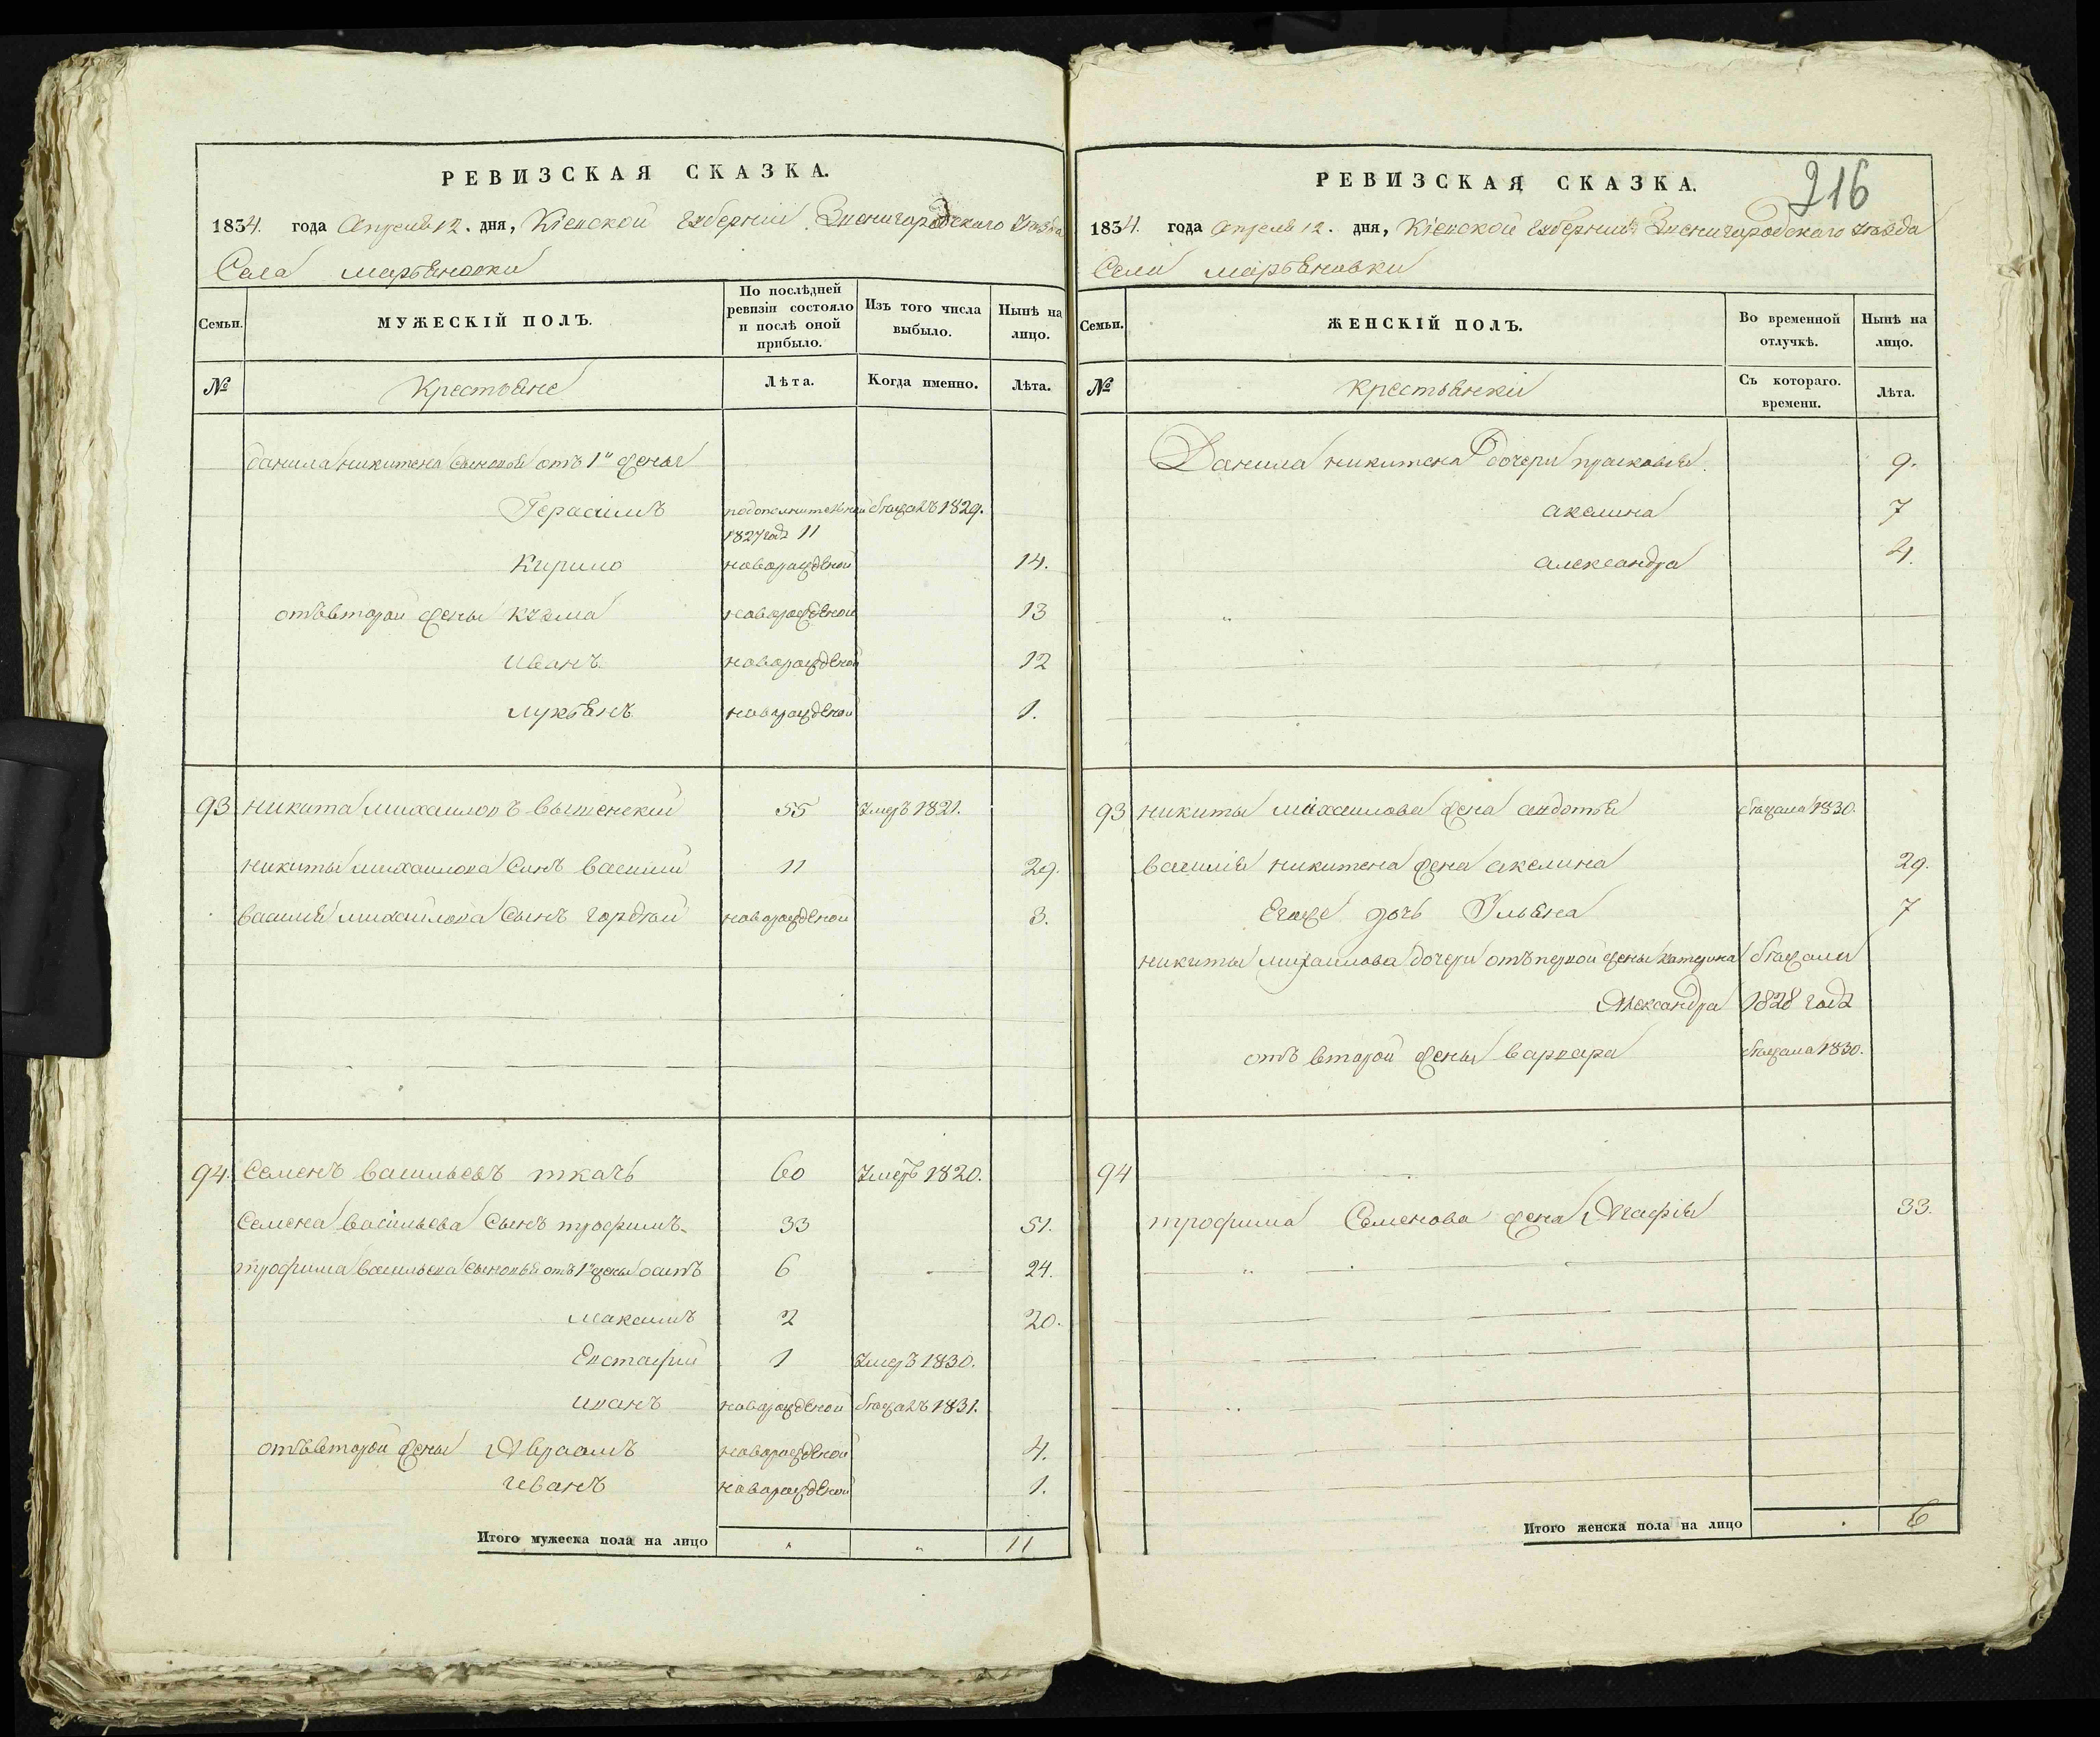 РЕВИЗСКАЯ СКАЗКА.
1834. года Апреля 12. дня, Кіевской Губерніи Звенигородского Уезда
Села Марьяновки
Семьи.
МУЖЕСКІЙ ПОЛЪ.
По послѣдней ревизіи состояло и послѣ оной прибыло.
Изъ того числа выбыло.
Нынѣ на лицо.
№
Крестьяне
Лѣта.
Когда именно.
Лѣта.
Данила Никитена сыновья отъ 1й жены
Герасимъ подополнительной бежалъ 1829.
1827 года 11
Кирило новорожденой 14.
отъ второй жены Кузма новорожденой 13
Иванъ новорожденой 12
Лукьянъ новорожденой 1.
93 Никита Михаиловъ 55 Умеръ 1821.
Никиты Михаилова Синъ Василий 11 29.
Василия Михайлова Сынъ Гордюй новорожденой 3.
94. Семенъ Васильевъ ткачъ 60 Умеръ 1820.
Семена Васильева Сынъ трофимъ 33 51.
трофима Васильева Сыновья отъ 1й жены осипъ 6 24.
Максимъ 2 20.
Евстафий 1 Умеръ 1830.
Иванъ новорожденой бежалъ 1831.
отъ второй жены Авраамъ новорожденой 4.
Иванъ новорожденой 1.
Итого мужеска пола на лицо 11
216
РЕВИЗСКАЯ СКАЗКА.
1834. года Апреля 12. дня, Кіевской Губерніи Звенигородского Уезда
Села Марьяновки
Семьи.
ЖЕНСКІЙ ПОЛЪ.
Во временной отлучкѣ.
Нынѣ на лицо.
№
Крестьянки
Съ котораго. времени.
Лѣта.
Данила Никитена дочери прасковия 9.
акилина 7
александра 4.
93 Никиты Михаилова жена авдотья бежала 1830.
Василия Никитена жена акелина 29.
Егоже дочь Ульяна 7
Никиты Михаилова дочери отъ первой жены катерина бежали
Александра 1828 года
отъ второй жены варвара бежала 1830.
94
трофима Семенова жена Агафия 33.
Итого женска пола на лицо 6